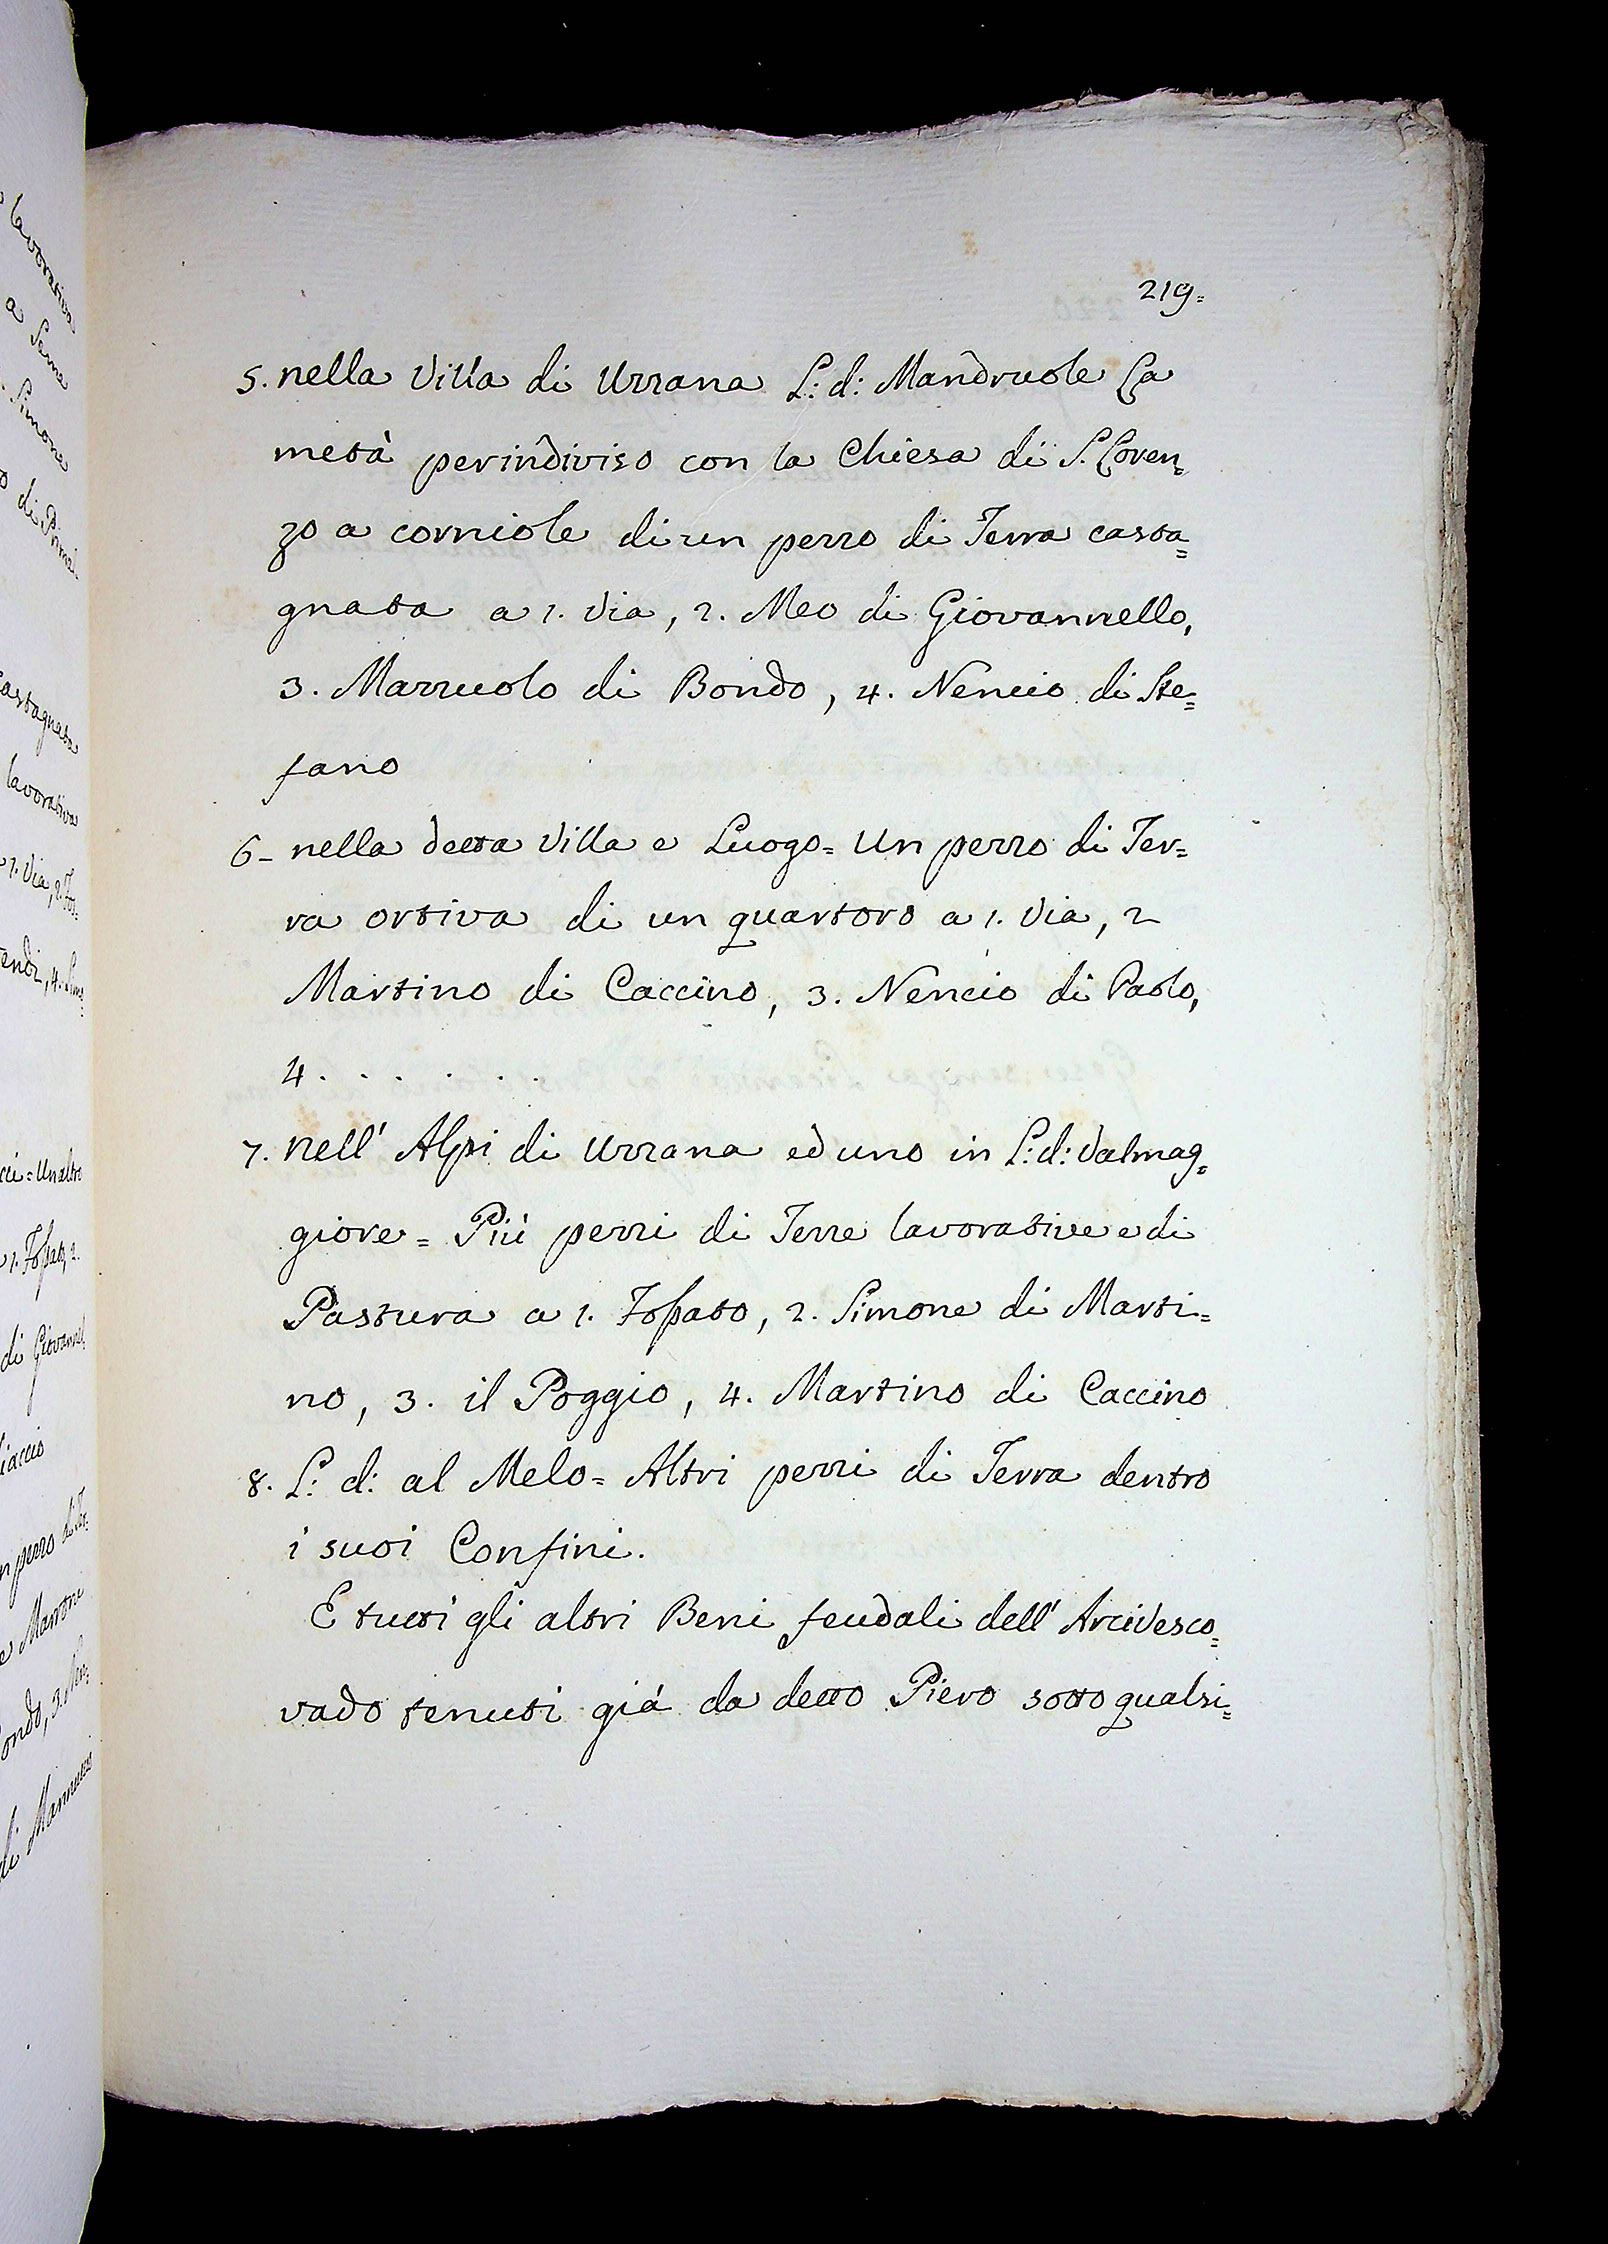 219=
5. nella Villa di Uzzana L: d: Mandruole La
metà perindiviso con la Chiesa di S. Loren=
zo a corniole di un pezzo di Terra casta=
gnata a 1. Via, 2. Meo di Giovannello,
3. Mazzuolo di Bondo, 4. Nencio di Ste=
fano
6- nella detta Villa e Luogo= Un pezzo di Ter=
ra ortiva di un quartoro a 1. Via, 2
Martino di Caccino, 3. Nencio di Paolo,
4 . . . . . .
7. nell' Alpi di Uzzana ed uno in L: d: Valmag=
giore= Più pezzi di Terre lavorative e di
Pastura a 1. Fossato, 2. Simone di Marti=
no, 3. il Poggio, 4. Martino di Caccino
8. L: d: al Melo= Altri pezzi di Terra dentro
i suoi Confini.
E tutti gli altri Beni feudali dell' Arcivesco=
vado tenuti già da detto Piero sotto qualsi=